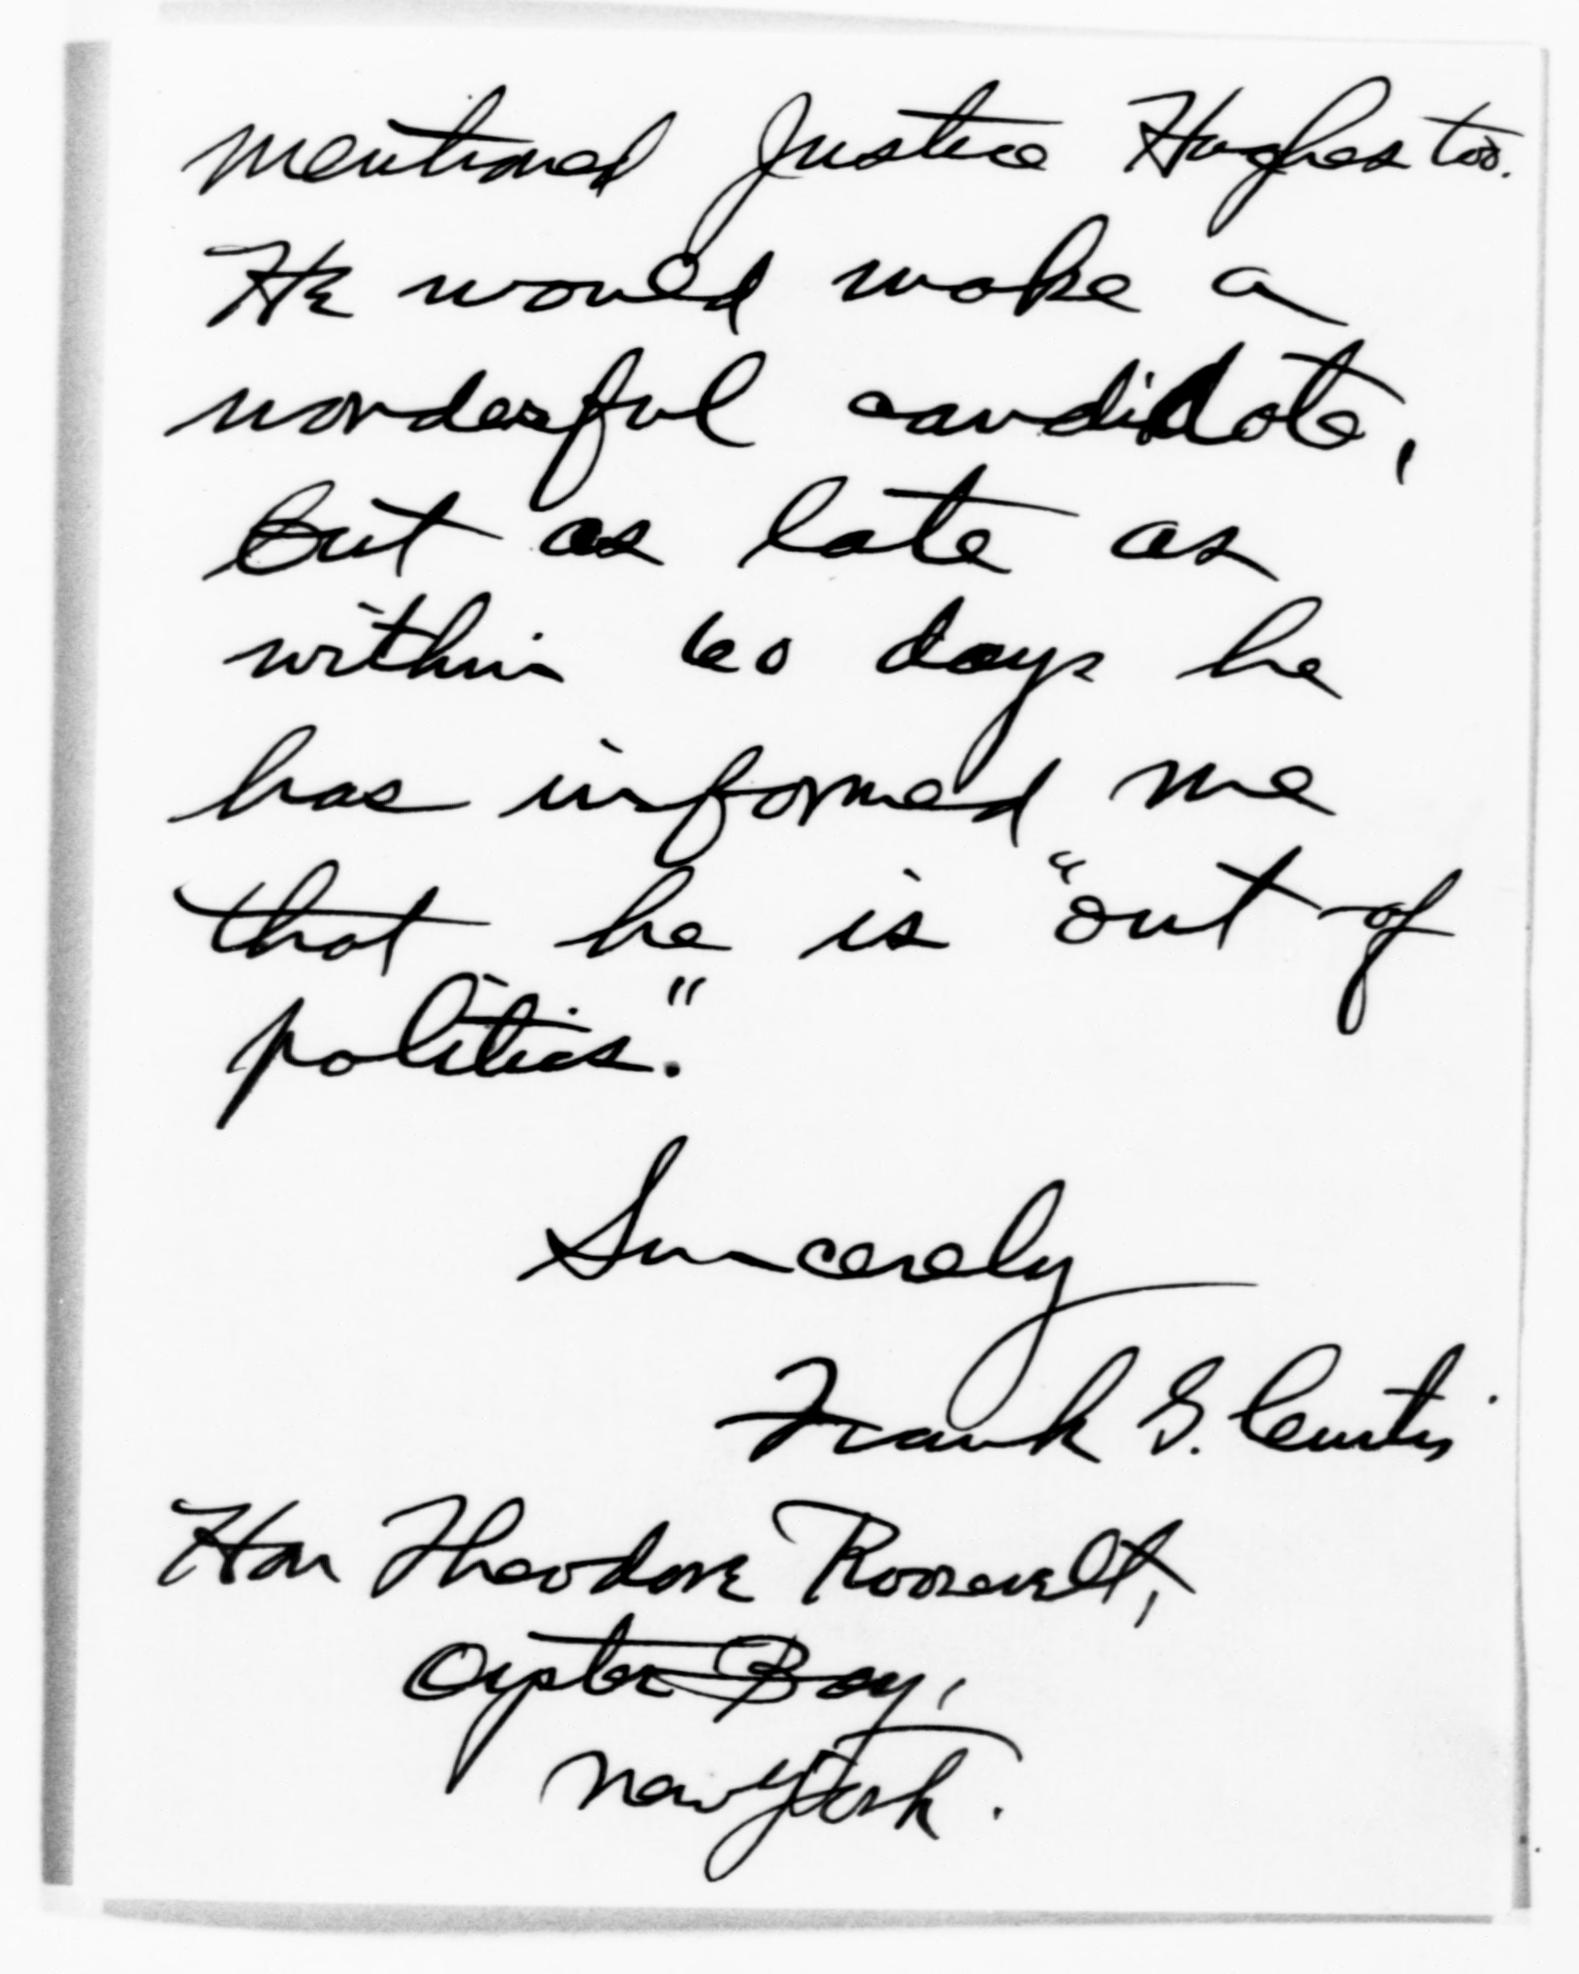 mentioned Justice Hughes too.
He would make a
wonderful candidate,
but as late as
within 60 days he
has informed me
that he is "out of
politics."
Sincerely
Frank G. Curtis
Hon Theodore Roosevelt,
Oyster Bay,
New York.